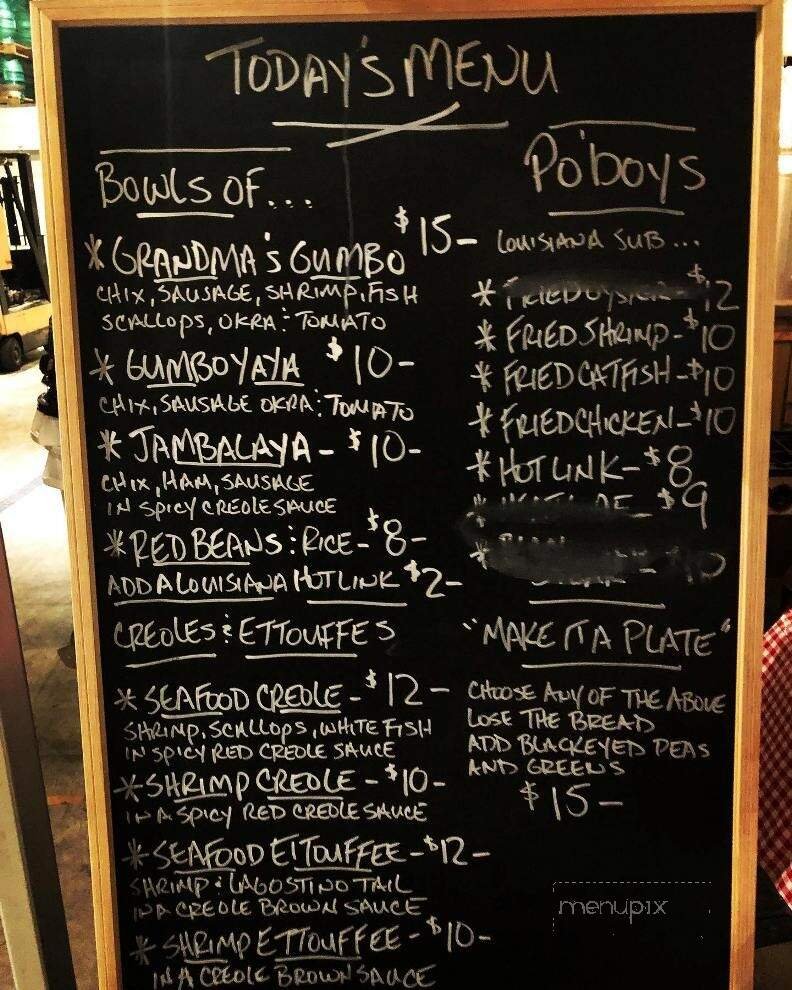 TODAY'S MENU
BOWLS OF...
* GRANDMA'S GUMBO $15-
CHIX, SAUSAGE, SHRIMP, FISH
SCALLOPS, OKRA : TOMATO
* GUMBO YAYA $10-
CHIX, SAUSAGE OKRA : TOMATO
* JAMBALAYA - $10-
CHIX, HAM, SAUSAGE
IN SPICY CREOLE SAUCE
* RED BEANS : RICE - $8-
ADD A LOUISIANA HOT LINK $2-
CREOLES : ETTOUFFES
* SEAFOOD CREOLE - $12-
SHRIMP, SCALLOPS, WHITE FISH
IN SPICY RED CREOLE SAUCE
* SHRIMP CREOLE - $10-
IN A SPICY RED CREOLE SAUCE
* SEAFOOD ETTOUFFEE - $12-
SHRIMP : LAGOSTINO TAIL
IN A CREOLE BROWN SAUCE
* SHRIMP ETTOUFFEE - $10-
IN A CREOLE BROWN SAUCE
PO'BOYS
LOUISIANA SUB...
* FRIED $12
* FRIED SHRIMP - $10
* FRIED CATFISH - $10
* FRIED CHICKEN - $10
* HOT LINK - $8
* - $9
*
"MAKE IT A PLATE"
CHOOSE ANY OF THE ABOVE
LOSE THE BREAD
ADD BLACKEYED PEAS
AND GREENS
$15-
menupix